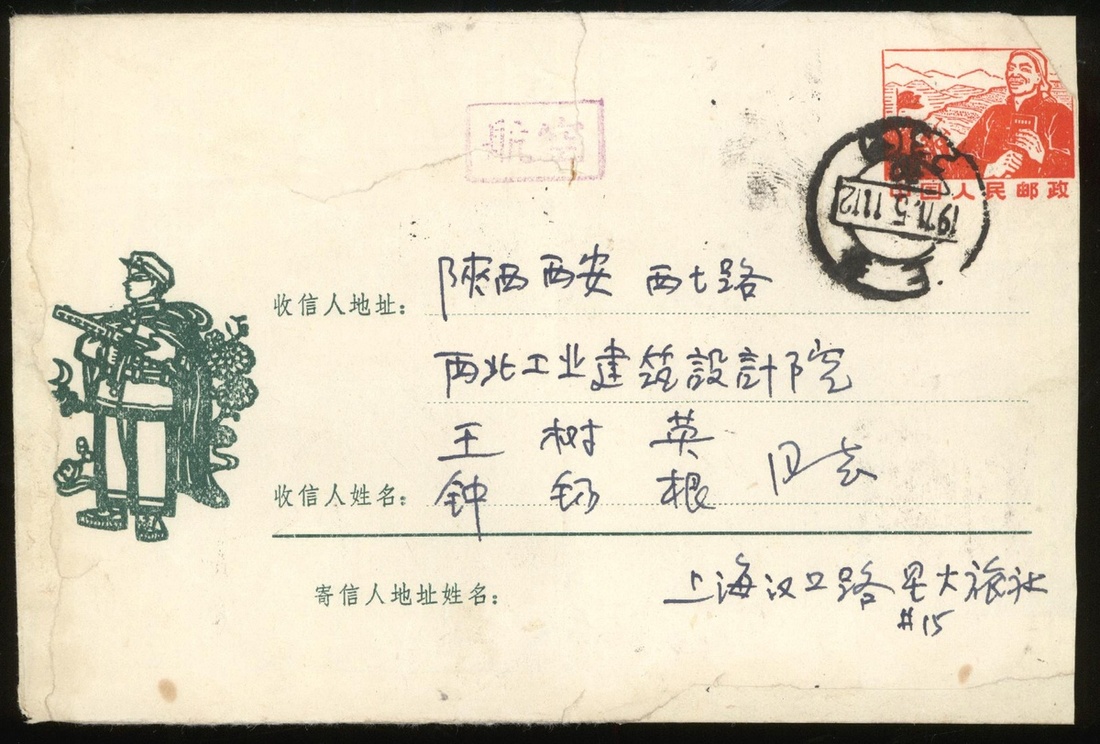 航空
中国人民邮政
1971.5.11
收信人地址：陝西西安 西七路
西北工业建筑設計院
王 树 英
收信人姓名：钟 根
寄信人地址姓名：上海汉口路 大旅社
#15